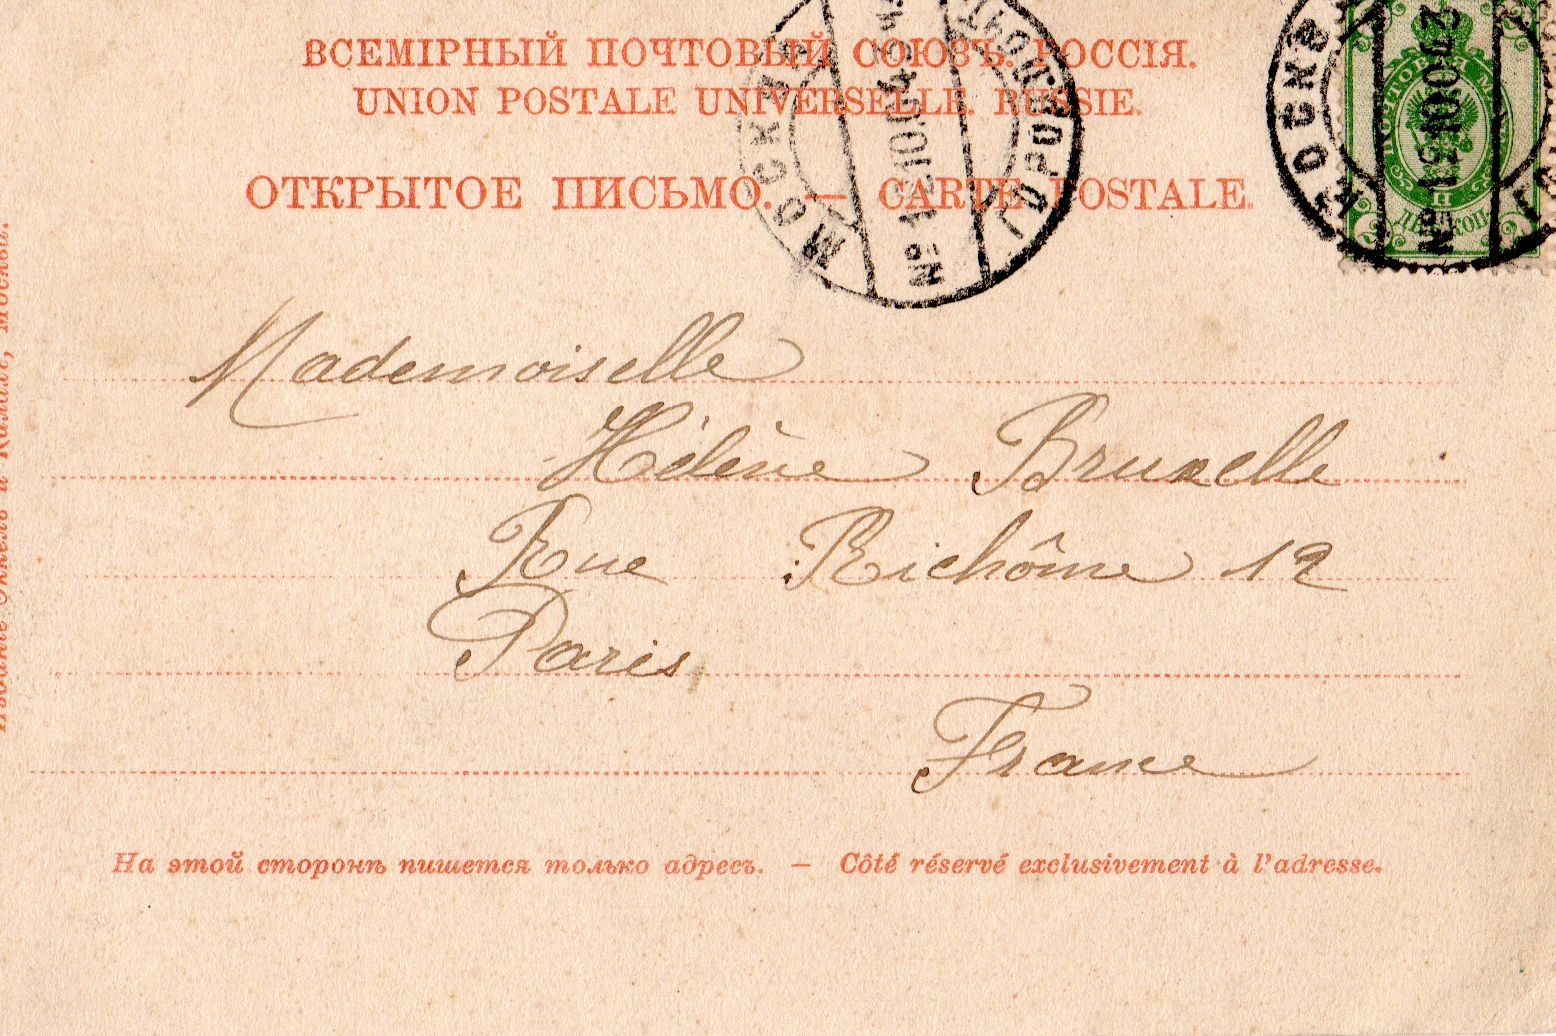 ВСЕМІРНЫЙ ПОЧТОВЫЙ СОЮЗЪ. РОССІЯ.
UNION POSTALE UNIVERSELLE. RUSSIE.
ОТКРЫТОЕ ПИСЬМО. — CARTE POSTALE.
МОСКВА
ПОЧТОВАЯ
Mademoiselle
Hélène Bruxelle
Rue Richôme 12
Paris
France
На этой сторонѣ пишется только адресъ. — Côté réservé exclusivement à l'adresse.
Москва.